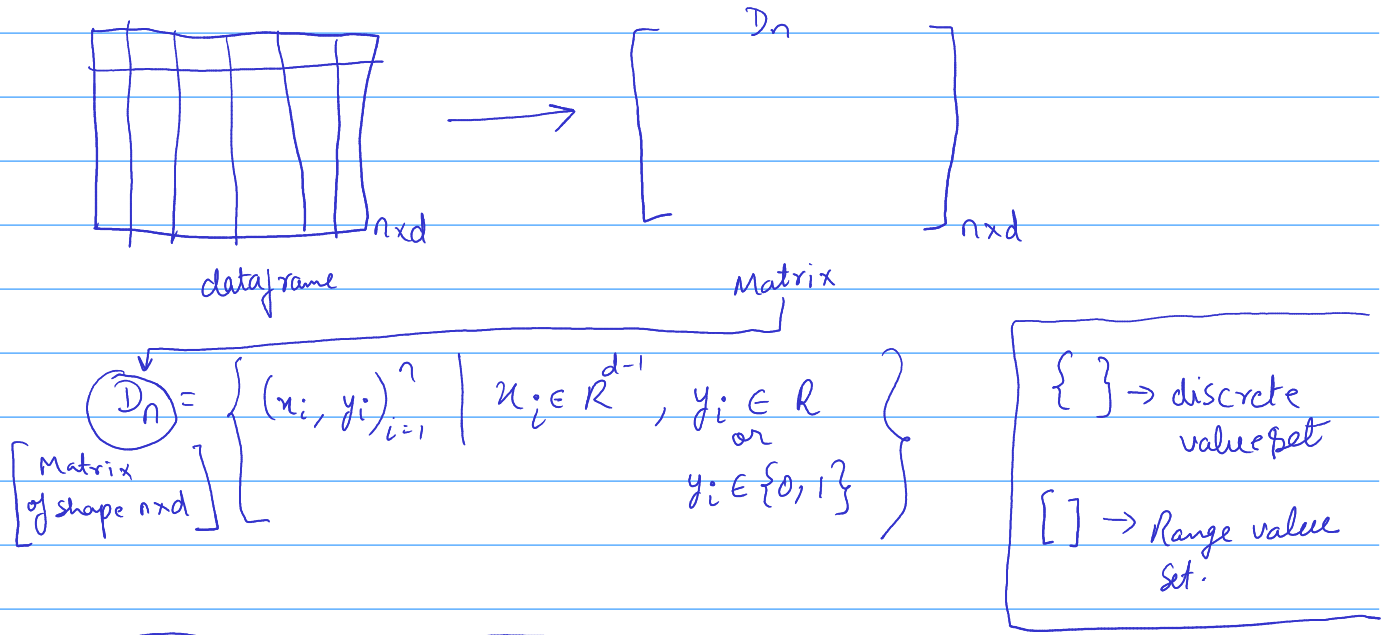 Dn
nxd
nxd
dataframe
Matrix
Dn = { (xi, yi)ⁿi=1 | xi ∈ R^d-1, yi ∈ R
or
yi ∈ {0, 1} }
[Matrix
of shape nxd]
{ } → discrete
value set
[ ] → Range value
set.